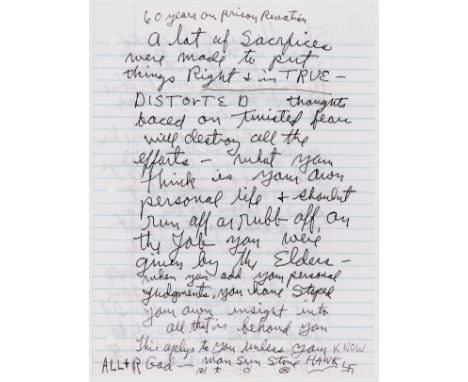 60 years on prison Rovation
A lot of Sacrfices
were made to put
things Right & in TRUE –
DISTORTED thoughts
baced on twisted fear
will destroy all the
efforts – what you
think is your own
personal life & shouldnt
run off or rubb off on
the Job you were
given by the Elders –
when you add your personal
judgments, you have stoped
your own insight into
all that is behond you
This aplys to you unless your KNOW
God – man Sun Stone HAWK